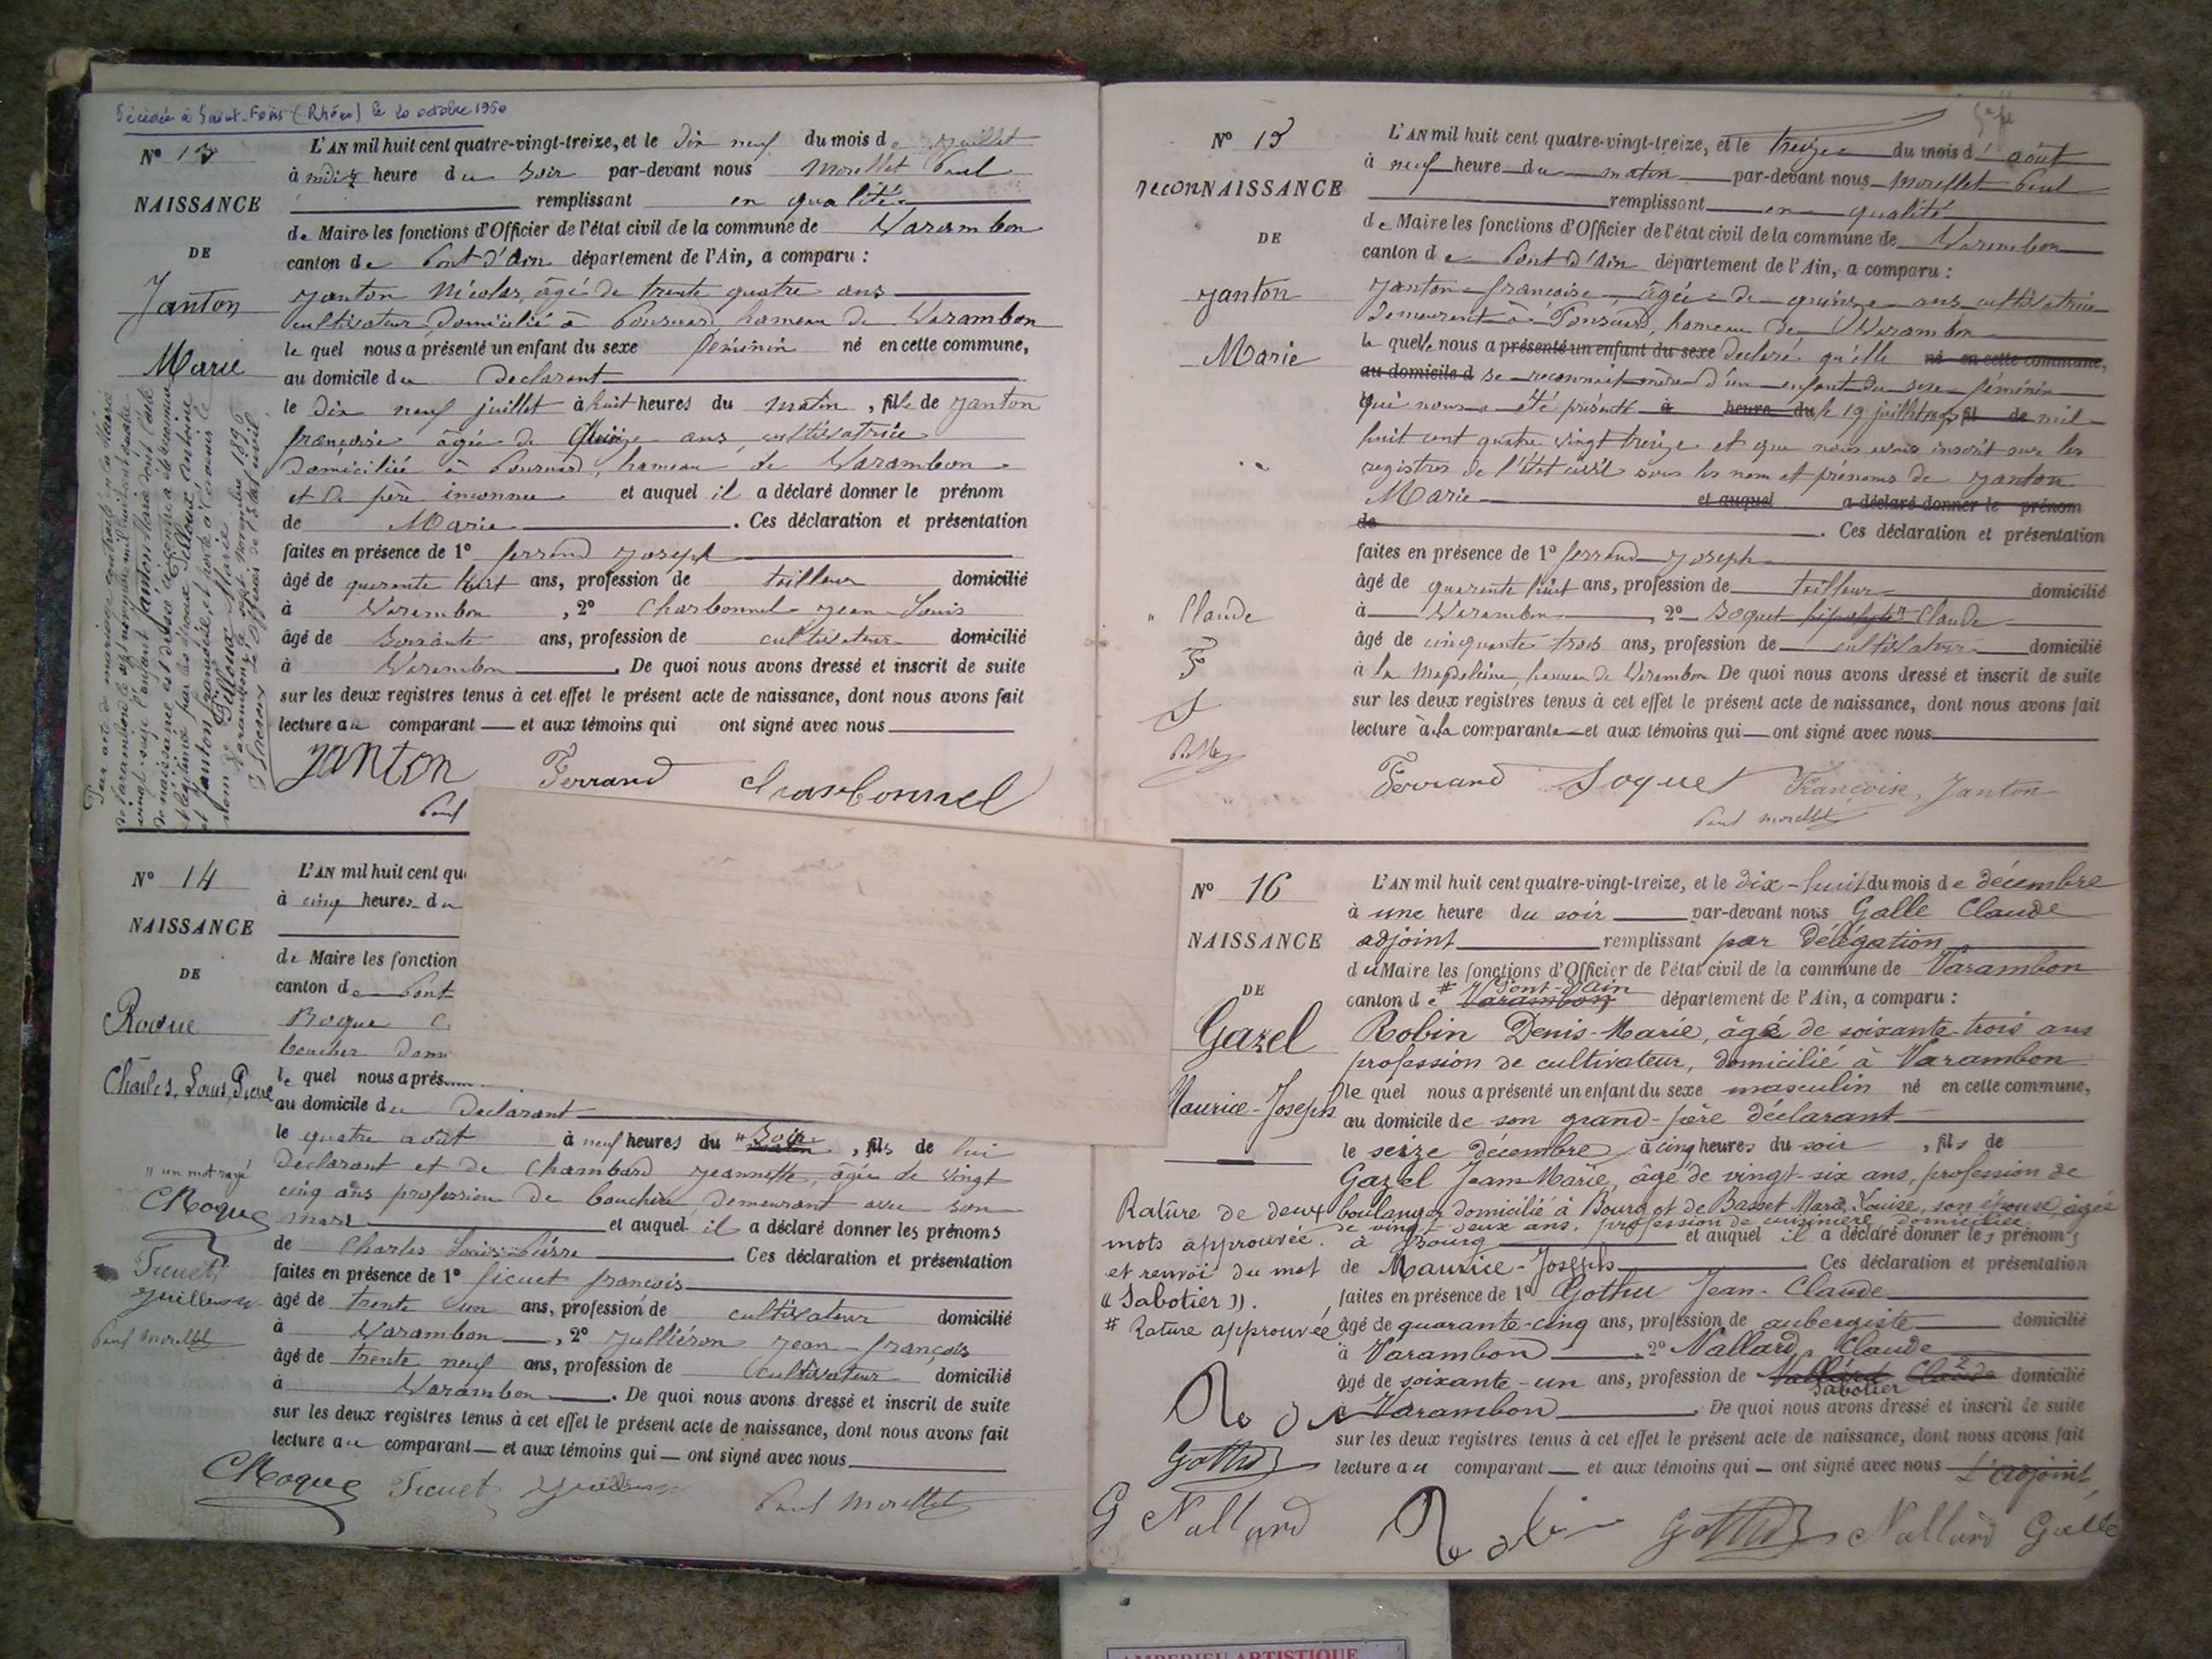 Décédée à Saint-Fons (Rhône) le 20 octobre 1980
N° 13
NAISSANCE
DE
Janton
Marie
L'AN mil huit cent quatre-vingt-treize, et le dix neuf du mois de juillet
à midi heure du soir par-devant nous Morellet Paul
remplissant en qualité
de Maire les fonctions d'Officier de l'état civil de la commune de Varambon
canton de Pont d'Ain département de l'Ain, a comparu :
Janton Nicolas, âgé de trente quatre ans
cultivateur domicilié à hameau de Varambon
le quel nous a présenté un enfant du sexe féminin né en cette commune,
au domicile du Déclarant
le dix neuf juillet à huit heures du matin, fille de Janton
françoise âgée de quinze ans, cultivatrice
domiciliée à hameau de Varambon
et de père inconnu et auquel il a déclaré donner le prénom
de Marie . Ces déclaration et présentation
faites en présence de 1° ferrand Joseph
âgé de quarante huit ans, profession de tailleur domicilié
à Varambon , 2° Charbonnel Jean-Louis
âgé de soixante ans, profession de cultivateur domicilié
à Varambon . De quoi nous avons dressé et inscrit de suite
sur les deux registres tenus à cet effet le présent acte de naissance, dont nous avons fait
lecture au comparant et aux témoins qui ont signé avec nous
Janton Ferrand Charbonnel
Paul
Par acte de mariage contracté en la Mairie
de Varambon le sept novembre mil huit cent quatre-
vingt-seize l'enfant Janton Marie dont l'acte
de naissance est dressé ci-contre a été reconnue
et légitimée par les époux Tilloux Antoine
et Janton Françoise, et porte à l'avenir le
nom de Tilloux Marie
Varambon, le sept novembre 1896
L'Officier de l'État civil
N° 14
NAISSANCE
DE
Roque
Charles, Louis, Pierre
L'AN mil huit cent qu
à cinq heures du
de Maire les fonction
canton de Pont
Roque C
boucher dom
le quel nous a prés
au domicile du Déclarant
le quatre août à neuf heures du # soir matin, fils de lui
déclarant et de Chambard Jeannette, âgée de vingt
cinq ans profession de bouchère demeurant avec son
mari et auquel il a déclaré donner les prénoms
de Charles Louis Pierre . Ces déclaration et présentation
faites en présence de 1° Ficuet françois
âgé de trente un ans, profession de cultivateur domicilié
à Varambon , 2° Julliéron Jean-françois
âgé de trente neuf ans, profession de cultivateur domicilié
à Varambon . De quoi nous avons dressé et inscrit de suite
sur les deux registres tenus à cet effet le présent acte de naissance, dont nous avons fait
lecture au comparant et aux témoins qui ont signé avec nous
" un mot rayé
CRoque
Ficuet
Paul Morellet
CRoque Ficuet Paul Morellet
N° 15
reconNAISSANCE
DE
Janton
Marie
L'AN mil huit cent quatre-vingt-treize, et le treize du mois d'août
à neuf heure du matin par-devant nous Morellet Paul
remplissant en qualité
de Maire les fonctions d'Officier de l'état civil de la commune de Varambon
canton de Pont d'Ain département de l'Ain, a comparu :
Janton françoise, âgée de quinze ans cultivatrice
demeurant à hameau de Varambon
la quelle nous a présenté un enfant du sexe déclaré qu'elle né en cette commune,
au domicile d se reconnait mère d'un enfant du sexe féminin
qui nous a été présenté à heure du le 19 juillet fil de mil
huit cent quatre vingt treize et que nous avons inscrit sur les
registres de l'état civil sous les nom et prénoms de Janton
Marie et auquel a déclaré donner le prénom
de . Ces déclaration et présentation
faites en présence de 1° ferrand Joseph
âgé de quarante huit ans, profession de tailleur domicilié
à Varambon , 2° Soquet hipolyte " Claude
âgé de cinquante trois ans, profession de cultivateur domicilié
à la Magdeleine, hameau de Varambon De quoi nous avons dressé et inscrit de suite
sur les deux registres tenus à cet effet le présent acte de naissance, dont nous avons fait
lecture à la comparante et aux témoins qui ont signé avec nous
" Claude
F
S
Ferrand Soquet Françoise, Janton
Paul Morellet
N° 16
NAISSANCE
DE
Gazel
Maurice-Joseph
L'AN mil huit cent quatre-vingt-treize, et le dix-huit du mois de décembre
à une heure du soir par-devant nous Galle Claude
adjoint remplissant par délégation
du Maire les fonctions d'Officier de l'état civil de la commune de Varambon
canton de # Varambon Pont-d'Ain département de l'Ain, a comparu :
Robin Denis-Marie, âgé de soixante-trois ans
profession de cultivateur, domicilié à Varambon
le quel nous a présenté un enfant du sexe masculin né en cette commune,
au domicile de son grand-père déclarant
le seize décembre à cinq heures du soir , fils de
Gazel Jean-Marie, âgé de vingt-six ans, profession de
boulanger domicilié à Bourg et de Basset Marie Louise, son épouse, âgée
de vingt-deux ans, profession de cuisinière domiciliée
à Bourg et auquel il a déclaré donner les prénoms
de Maurice-Joseph . Ces déclaration et présentation
faites en présence de 1° Gothu Jean-Claude
âgé de quarante-cinq ans, profession de aubergiste domicilié
à Varambon , 2° Nallard Claude
âgé de soixante-un ans, profession de Nallard Claude Sabotier domicilié
à Varambon . De quoi nous avons dressé et inscrit de suite
sur les deux registres tenus à cet effet le présent acte de naissance, dont nous avons fait
lecture au comparant et aux témoins qui ont signé avec nous L'adjoint,
Rature de deux
mots approuvée.
et renvoi du mot
« Sabotier ».
# Rature approuvée
Gothu
G Nallard Robin Gothu Nallard Galle
AMBERIEU ARTISTIQUE